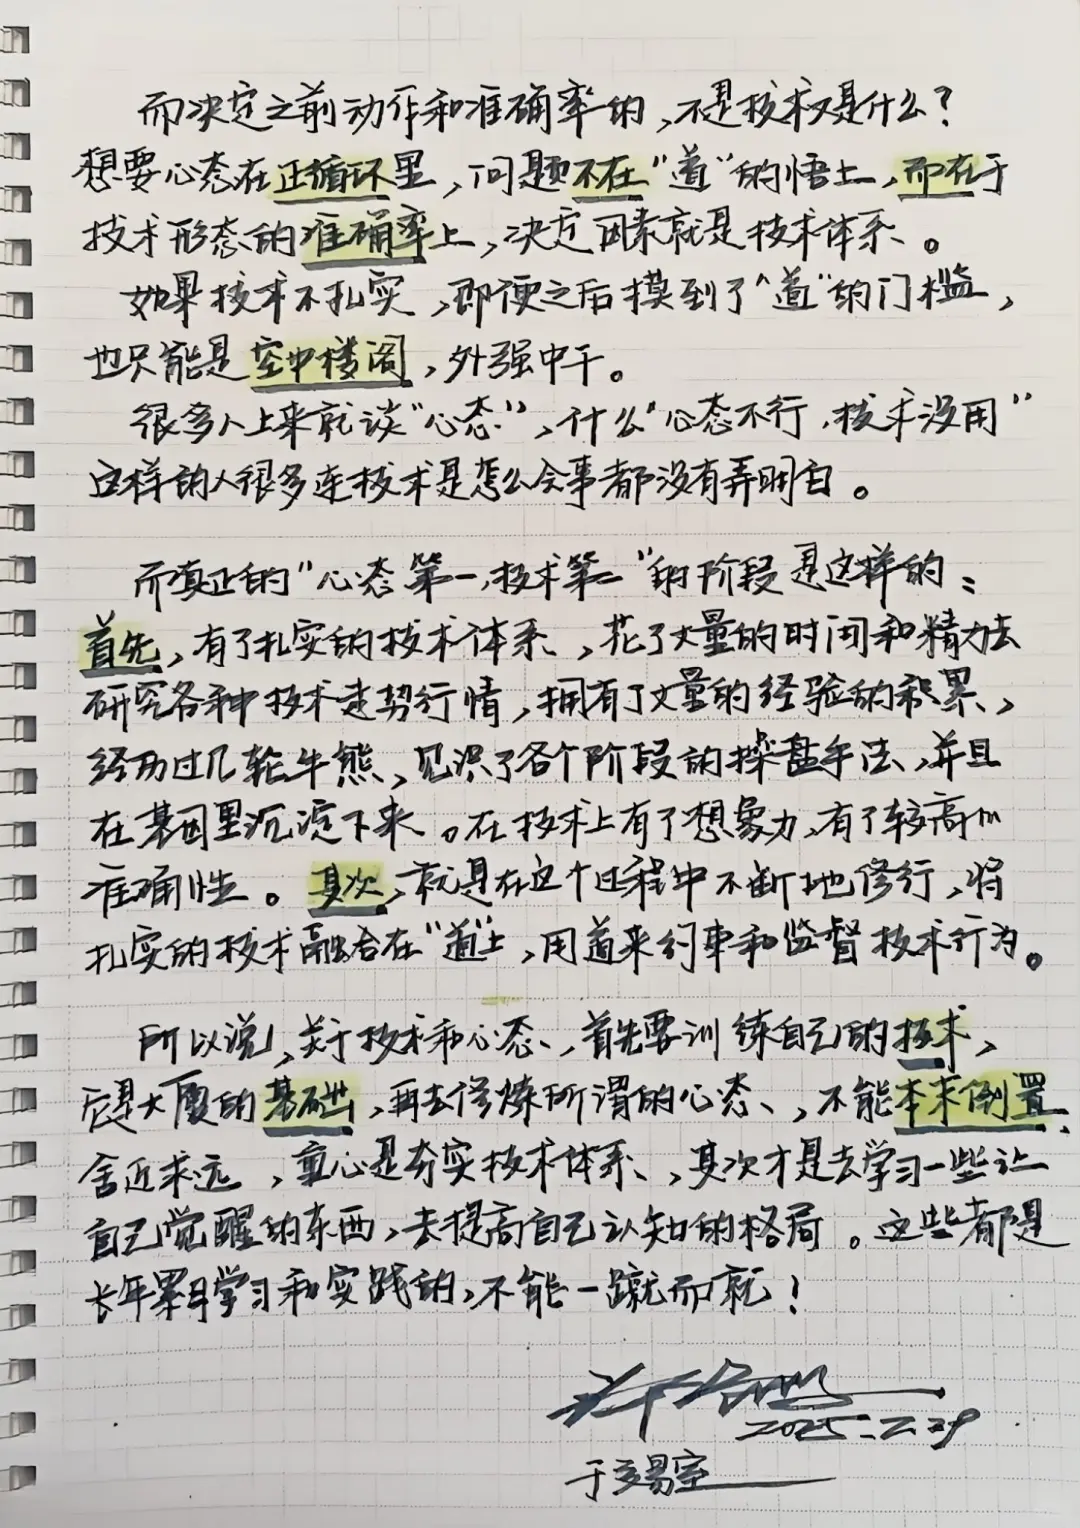 而决定之前动作和准确率的，不是技术又是什么？
想要心态在正循环里，问题不在“道”的悟上，而在于
技术形态的准确率上，决定因素就是技术体系。
如果技术不扎实，即便之后摸到了“道”的门槛，
也只能是空中楼阁，外强中干。
很多人上来就谈“心态”，什么“心态不行，技术没用”
这样的人很多连技术是怎么会事都没有弄明白。
而真正的“心态第一，技术第二”的阶段是这样的：
首先，有了扎实的技术体系，花了大量的时间和精力去
研究各种技术走势行情，拥有了大量的经验的积累，
经历过几轮牛熊，见识了各个阶段的操盘手法，并且
在基因里沉淀下来。在技术上有了想象力，有了较高的
准确性。其次，就是在这个过程中不断地修行，将
扎实的技术融合在“道”上，用道来约束和监督技术行为。
所以说，关于技术和心态，首先要训练自己的技术，
它是大厦的基础，再去修炼所谓的心态，不能本末倒置，
舍近求远，重心是夯实技术体系，其次才是去学习一些让
自己觉醒的东西，去提高自己认知的格局。这些都是
长年累月学习和实践的，不能一蹴而就！
2025.2.29
于交易室